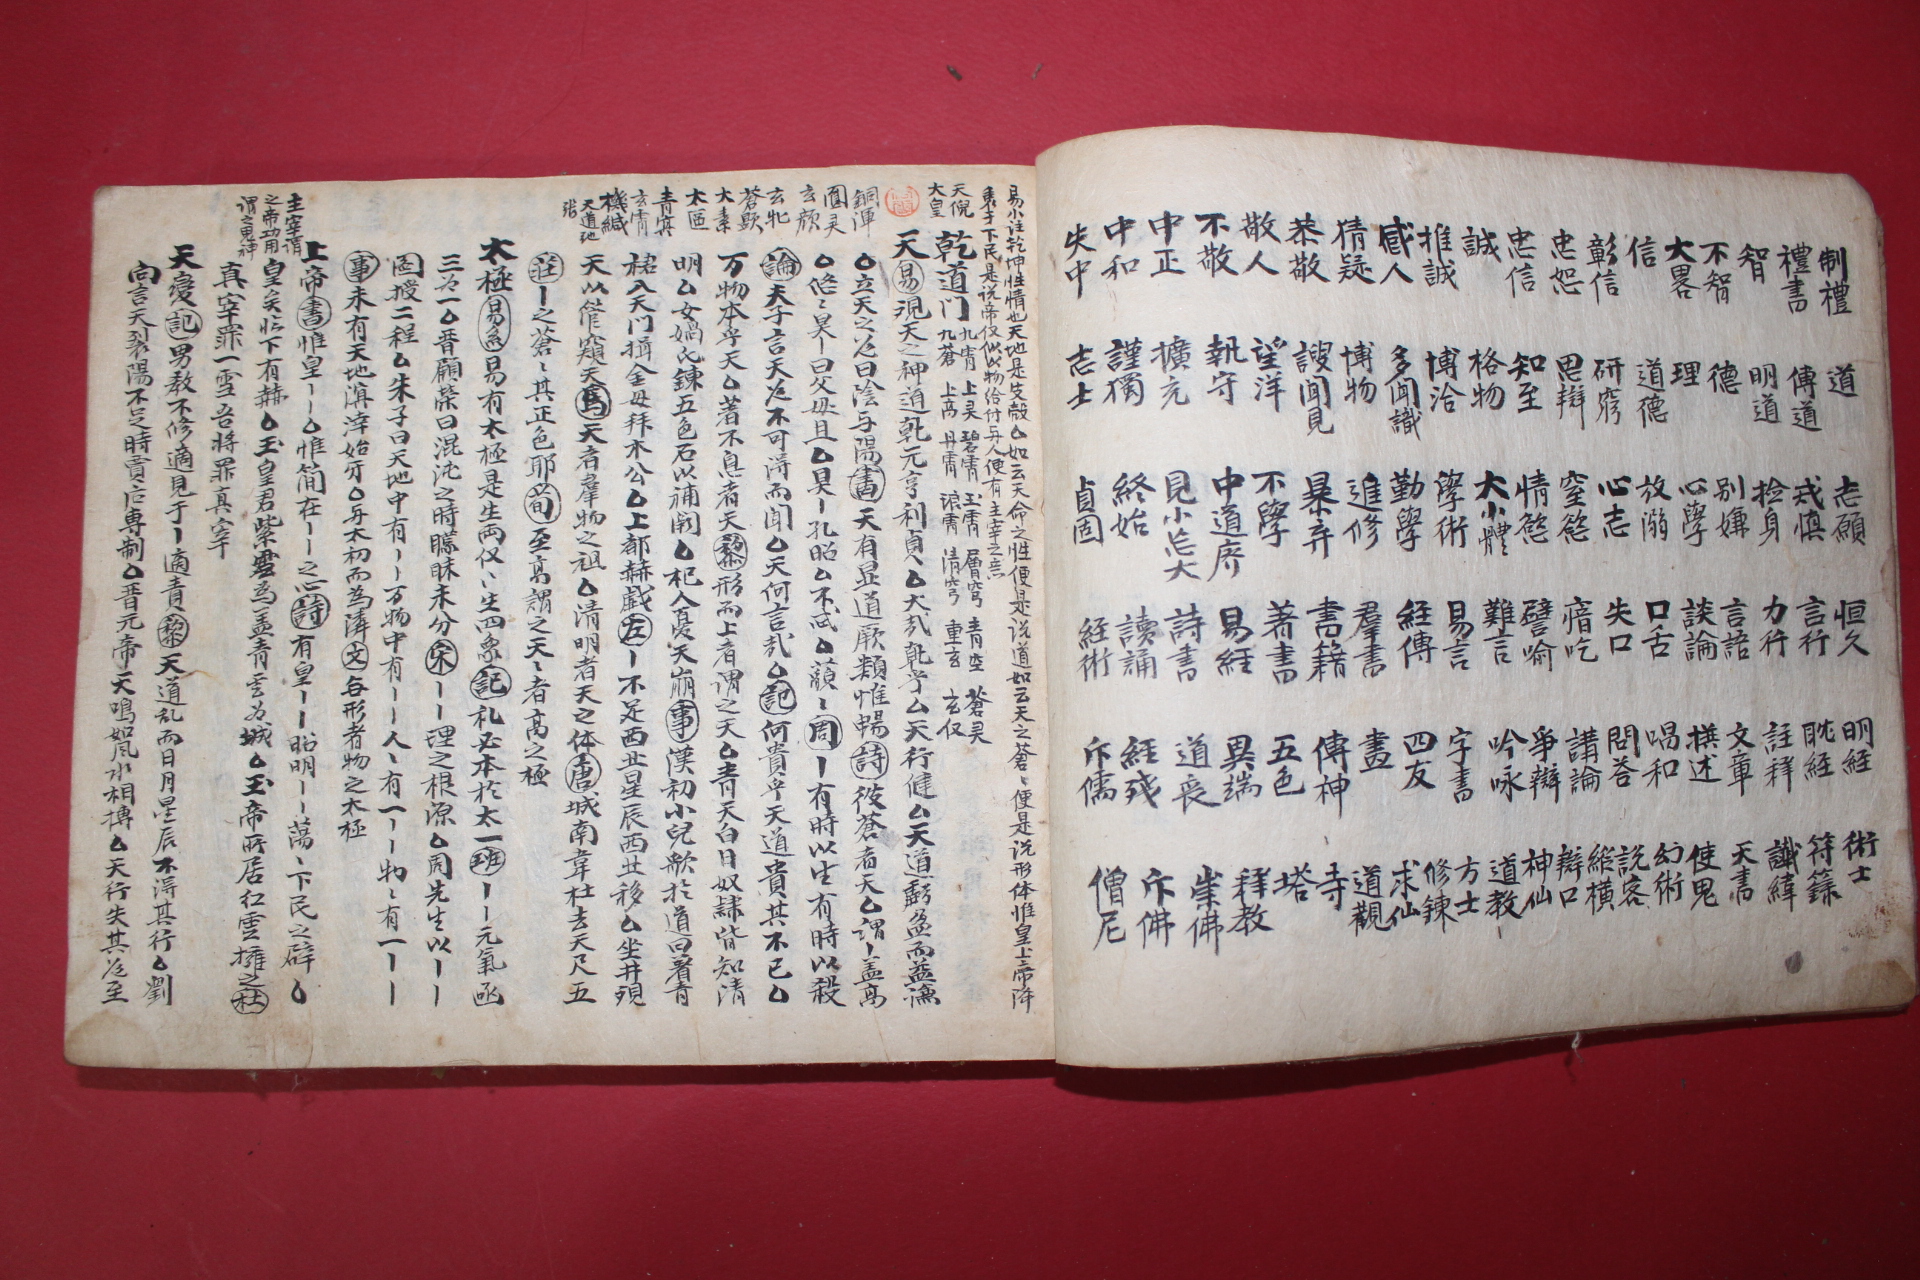 制禮 禮書 智 不智 大畧 信 彰信 忠恕 忠信 誠 推誠 感人 猜疑 恭敬 敬人 不敬 中正 中和 失中
道 傳道 明道 德 道德 理 研窮 思辯 知至 格物 博洽 多聞識 博物 謏聞見 望洋 執守 擴充 謹獨 志士
志願 戒慎 捡身 别嫌 心學 放溺 心志 窒慾 情慾 大小體 學術 勤學 進修 暴弃 不學 中道廢 見小忘大 終始 貞固
恒久 言行 力行 言語 談論 口舌 失口 瘖吃 譬喻 難言 易言 經傳 羣書 書籍 著書 易經 詩書 讀誦 経術
明経 耽経 註释 文章 撰述 唱和 問答 講論 爭辯 吟咏 字書 四友 畫 傳神 五色 異端 道丧 経残 斥儒
術士 符籙 讖緯 天書 使鬼 幻術 説客 縱横 辯口 神仙 道教 方士 修鍊 求仙 道觀 寺 塔 释教 崇佛 斥佛 僧尼
易小註乾坤性情也天地是皮殼如云天命之性便是说道如云天之蒼〻便是说形体惟皇上帝降
衷于下民是说帝仅似以物给付与人便有主宰之意
天倪 大皇
乾道门 九霄 上昊 碧霄 玉霄 層穹 青空 蒼灵
九蒼 上髙 丹霄 琅霄 清穹 重玄 玄仅
天 易 观天之神道乾元亨利貞大哉乾乎天行健天道虧盈而益謙
銅渾 圎灵 玄顔 玄牝 蒼顥 大素 太區 青冥 玄霄 機緘 天道地
立天之道曰陰与陽 書 天有显道厥類惟暢 詩 彼蒼者天謂盖髙
悠〻昊丨曰父母且昊丨孔昭不忒 周 丨有時以生有時以殺
論 夫子言天道不可淂而聞天何言哉 記 何貴乎天道貴其不已
万物本乎天著不息者天 形而上者谓之天青天白日奴隸皆知清
明女媧氏鍊五色石以補闕杞人憂天崩 事 漢初小兒歌於道曰著青
裙入天门揖金母拜木公上都赫戲 左 丨不足西北星辰西北移坐井覌
天以管窺天 天者羣物之祖清明者天之体 唐 城南韋杜去天尺五
莊 丨之蒼〻其正色耶 荀 至髙謂之天〻者髙之極
太極 易 易有太極是生兩仅〻生四象 記 礼必本於太一 班 丨丨元氣函
三为一晋顧榮曰混沌之時矇昧未分 宋 丨丨理之根源周先生以丨丨
圖授二程朱子曰天地中有丨丨万物中有丨丨人〻有一丨丨物〻有一丨丨
事 未有天地溟涬始牙与太初而為隣 文 各形者物之太極
上帝 書 惟皇丨丨惟簡在丨丨之心 詩 有皇丨丨昭明丨丨蕩〻下民之辟
主宰谓之帝功用谓之鬼神
皇矣临下有赫玉皇君紫雲為盖青雲为城玉帝所居红雲擁之 杜
真宰罪一雪吾將罪真宰
天變 記 男教不修適見于丨適責 天道乱而日月星辰不淂其行劉
向言天裂陽不足時賈后専制晋元帝天鳴如风水相搏天行失其道至